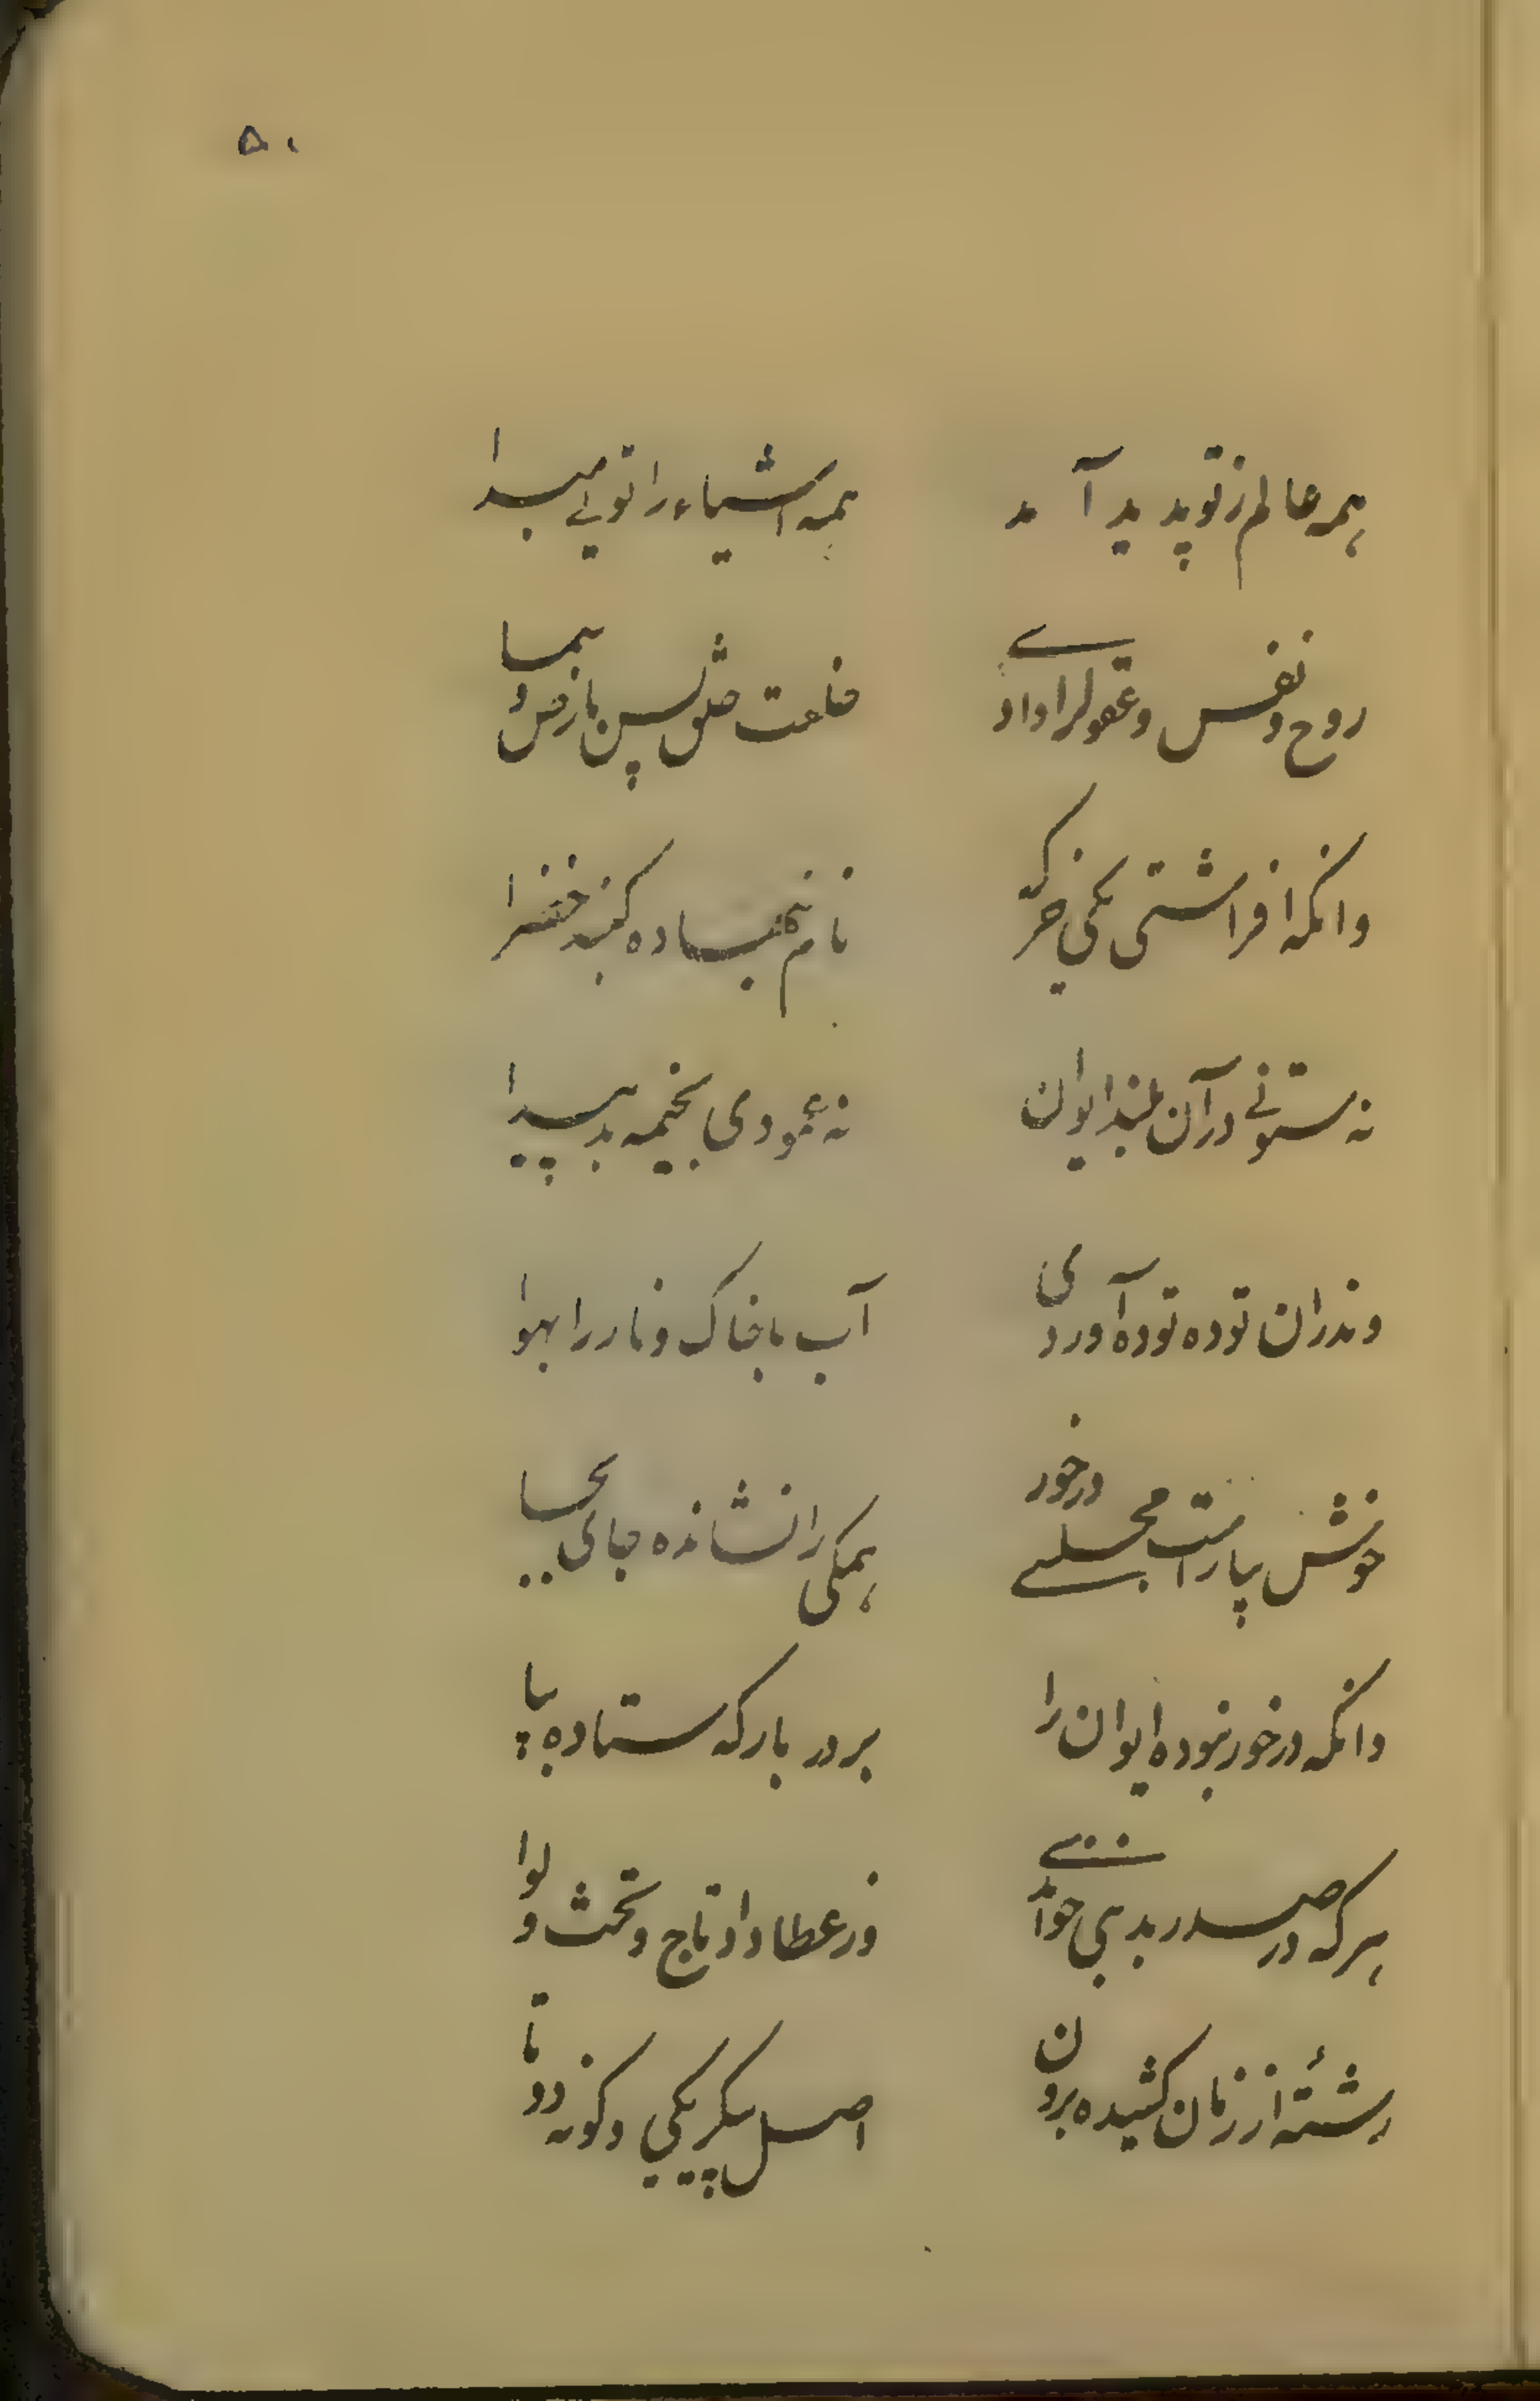 ۵۰
همه عالم ز تو پدید آمد همه اشیاء را توئی مبدا
روح و نفس و عقول را دادے خلعت خلق پس بارض و سما
وانگه افراشتی یکی خرگه نام بنهاده گنبد خضرا
نه ستونے در آن بلند ایوان نه عمودی بخیمه بد پیدا
وندران توده توده آوردی آب با خاک و نار را بهوا
خوش بیاراست مجلسے در خور همگی را نشانده جای بجا
وانکه در خور نبوده ایوان را بر در بارگه ستاده بپا
هرکه در صدر بد همی خواندے وز عطا داد تاج و تخت و لوا
رشتهٔ از زمان کشیده برون اصل پیکر یکی و گونه دو تا